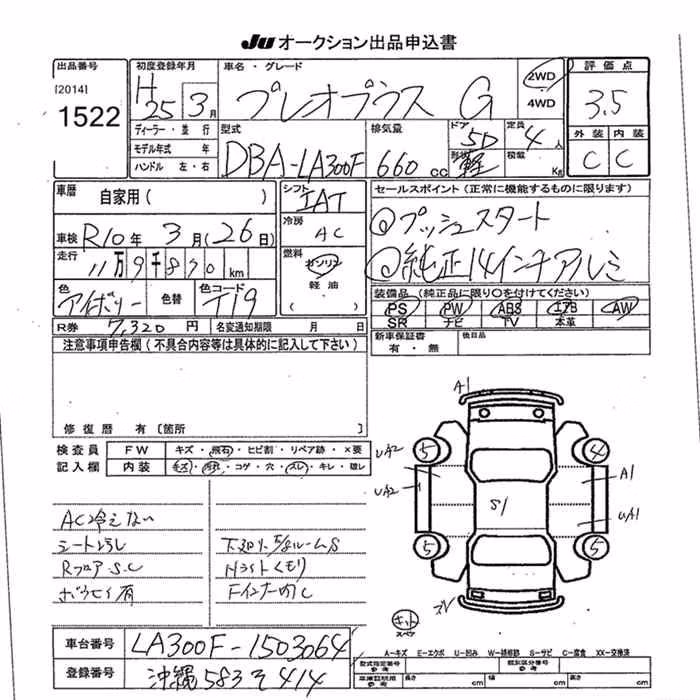 JU オークション出品申込書
出品番号
[2014]
1522
初度登録年月
H 25年 3月
ディーラー・並行
モデル年式 年
ハンドル 左・右
車名・グレード
プレオプラス G
2WD
4WD
評価点
3.5
外装 内装
C C
型式
DBA-LA300F
排気量
660 cc
ドア 5D
形状 軽
定員 4人
積載 Kg
車歴 自家用( )
車検 R10年 3月(26日)
走行 11万9千870km
色 アイボリー 色替 色コード T19
R券 7,320円 名変通知期限 月 日
シフト IAT
冷房 AC
燃料 ガソリン
軽油
( )
セールスポイント(正常に機能するものに限ります)
◎プッシュスタート
◎純正14インチアルミ
装備品(純正品に限り○を付けてください)
PS PW ABS エアB AW
SR ナビ TV 本革
新車保証書 有・無 後日品
注意事項申告欄(不具合内容等は具体的に記入して下さい)
修復歴 有〔箇所 〕
検査員
記入欄
FW キズ・飛石・ヒビ割・リペア跡・×要
内装 キズ・汚れ・コゲ・穴・スレ・キレ・破レ
AC冷えない
Rフロア S.C
Hライトくもり
A1
UA2
UA2
5
4
A1
UA1
S1
5
5
キット
スペア
車台番号 LA300F-1503064
登録番号 沖縄 583 そ 414
A-キズ E-エクボ U-凹み W-補修跡 S-サビ C-腐食 XX-交換済
型式指定番号 参考
類別区分番号 参考
車庫証明用 参考
長さ cm 幅 cm 高さ cm